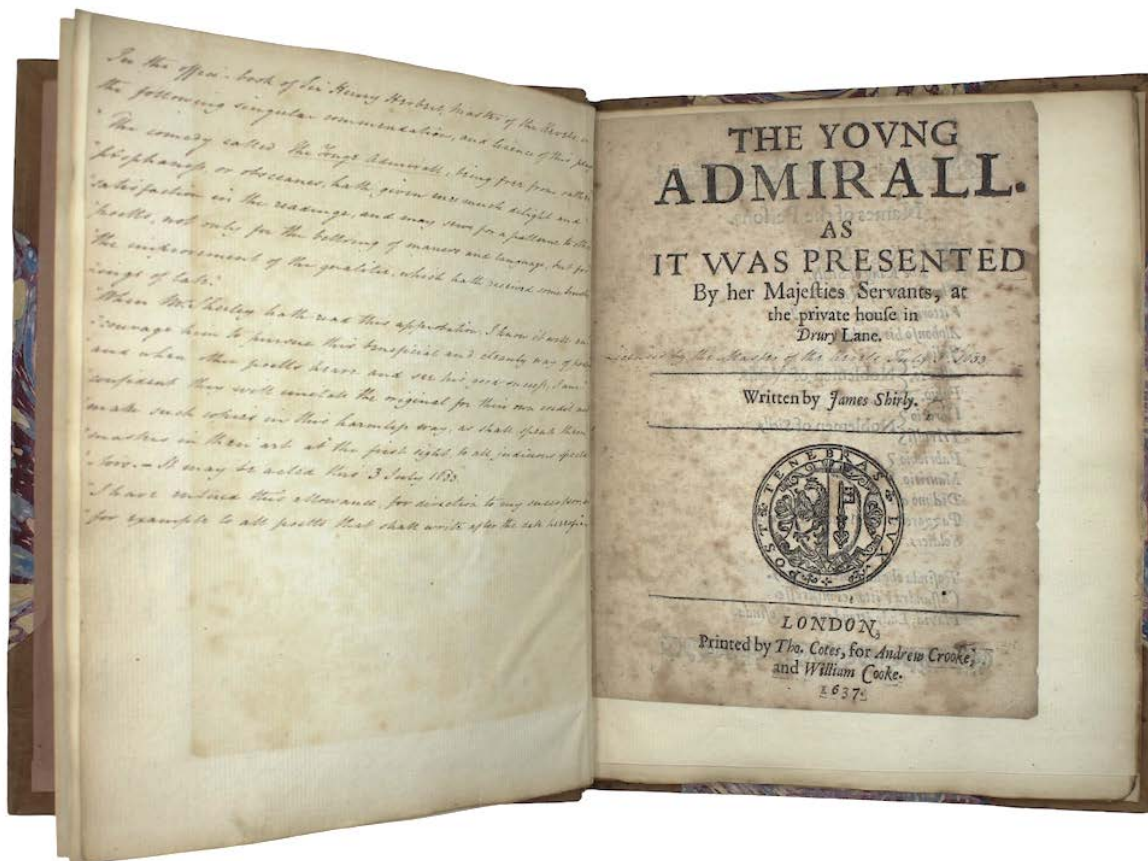 In the office-book of Sir Henry Herbert, Master of the Revels, is
the following singular commendation, and licence of this play
"The comedy called The Yonge Admirall, being free from oaths,
prophaness or obsceanes, hath given mee much delight and
satisfaction in the readinge, and may serve for a patterne to other
poetts, not only for the bettring of maners and language, but for
the improvement of the qualitie, which hath received some brush-
ings of late.
"When Mr. Sherley hath read this approbation, I know it will en-
courage him to pursue this beneficial and cleanly way of poetry,
and when other poetts heare and see his good success, I am
confident they will imitate the original for their own credit, and
make such copies in this harmless way, as shall speak them
masters in their art, at the first sight, to all judicious specta-
tors. — It may be acted this 3 July 1633.
"I have entred this allowance, for direction to my successor, and
for example to all poetts that shall write after the date hereof."
THE YOVNG
ADMIRALL.
AS
IT WAS PRESENTED
By her Majeſties Servants, at
the private houſe in
Drury Lane.
Licensed by the Master of the Revels July 3. 1633
Written by James Shirly.
POST TENEBRAS LVX
LONDON,
Printed by Tho. Cotes, for Andrew Crooke,
and William Cooke.
1637.